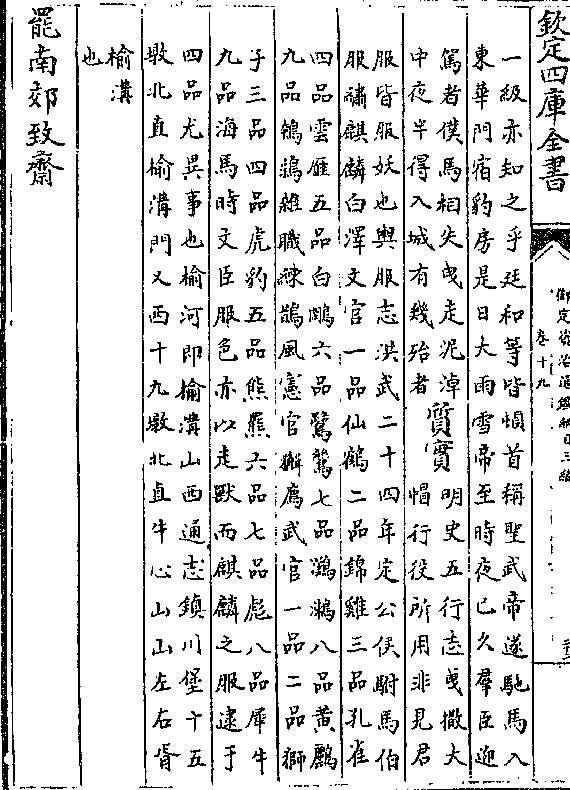 欽定四庫全書
御定資治通鑑綱目三編
卷十九
一級亦知之乎廷和等皆頓首稱聖武帝遂馳馬入
東華門宿豹房是日大雨雪帝至時夜已久羣臣迎
駕者僕馬相失曳走泥淖
中夜半得入城有幾殆者
質實
明史五行志曳撒大
帽行役所用非見君
服皆服妖也輿服志洪武二十四年定公侯駙馬伯
服繡麒麟白澤文官一品仙鶴二品錦雞三品孔雀
四品雲雁五品白鷴六品鷺鷥七品鸂鶒八品黃鸝
九品鵪鶉雜職練鵲風憲官獬廌武官一品二品獅
子三品四品虎豹五品熊羆六品七品彪八品犀牛
九品海馬時文臣服色亦以走獸而麒麟之服逮于
四品尤異事也榆河即榆溝山西通志鎮川堡十五
墩北直榆溝門又西十九墩北直牛心山山左右皆
榆溝
也
罷南郊致齋